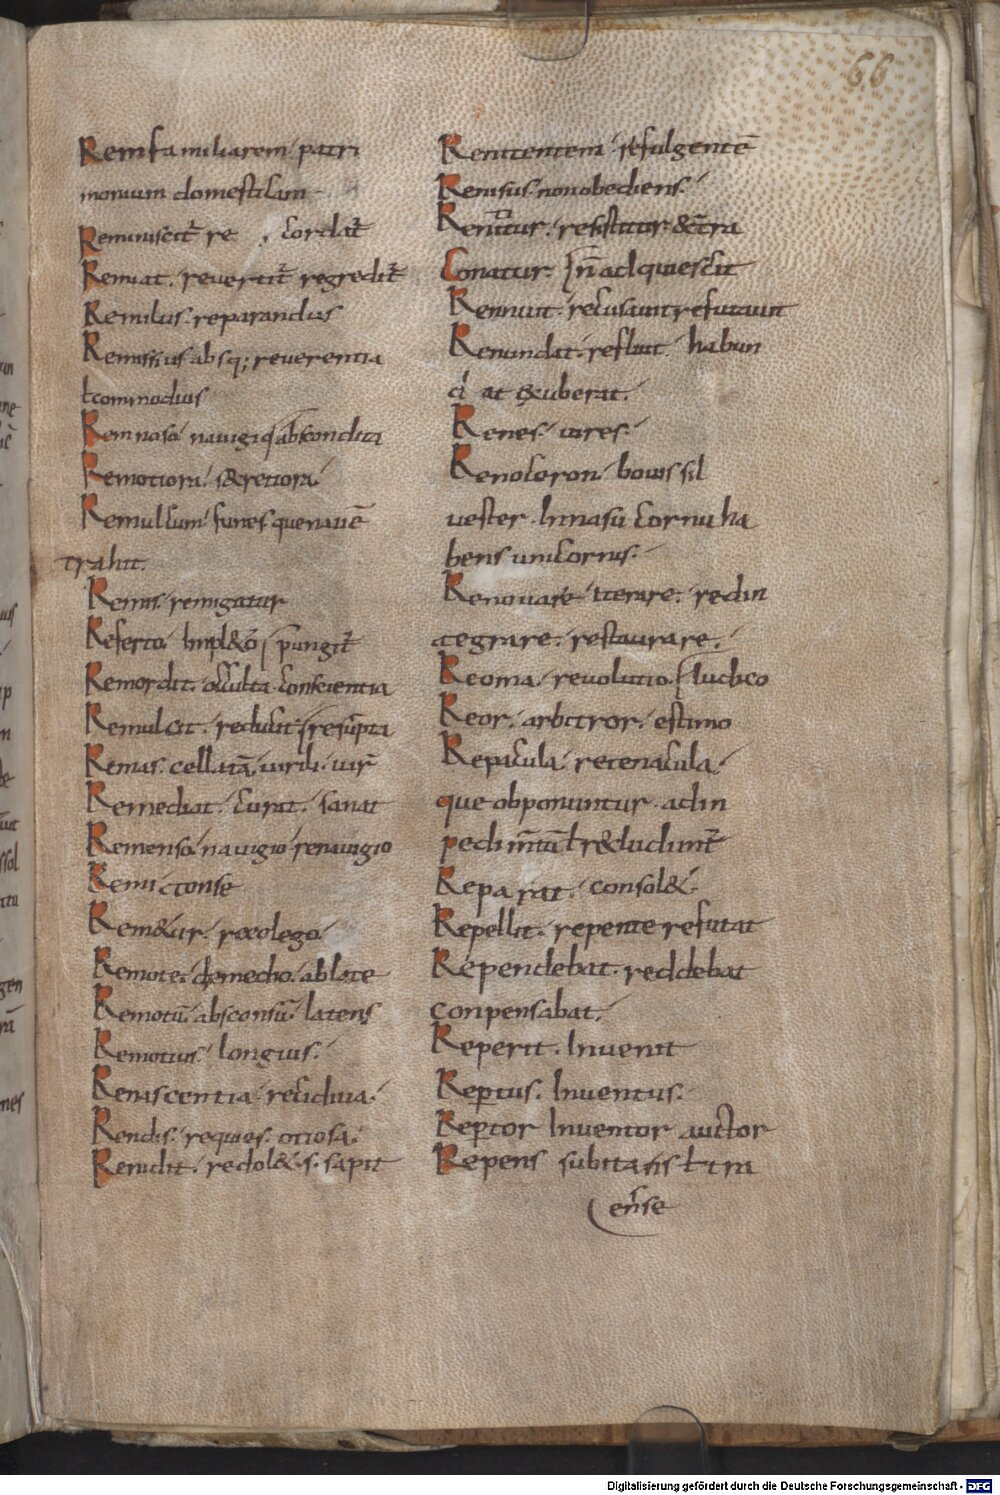 66
Remfamiliarem patri
monium domesticum
Reminiscit̄ re cordat̄
Remeat. revertit̄ regredit̄
Remilus. reparandus
Remissius absq; reverentia
ł commodius
Remnosa navigiis absconditi
Remotiora. secretiora.
Remulcum funes que navē
trahit.
Remis remigatur
Referto Impl&ō pungit̄
Remordit. occulta conscientia
Remulcit. reducit
Remas. cellitā. virdi. vir̄
Remediat. curat. sanat
Remenso navigio renavigio
Remictonse
Rem&ur. recolego
Remote. de medio. ablate
Remotū. absconsū. latens
Remotius. longius.
Renascentia recidiva.
Rendis. requies. otiosa.
Renidit. redol&. s. sapit
Renitentem. refulgentē
Renisus. non obediens.
Renitur. resistitur &c̄tra
Conatur. n̄ adquiescit
Rennuit. recusavit refutavit
Renundat. refluit habun
d at exuberat.
Renes. vires.
Renoceron. bovis sil
vester. In nasu cornu ha
bens unicornis.
Renovare. iterare. redin
tegrare. restaurare.
Reoma. revolutio. ludico
Reor. arbitror. estimo
Repacula. retenacula.
que obponuntur. ad in
pedim̄tū ł r&ludunt̄
Repa rat. consol&.
Repellit. repente refutat
Rependebat. reddebat
conpensabat.
Reperit. Invenit
Rep̱tus. Inventus.
Rep̱tor Inventor auctor
Repens subitaneus ł tra
ense
Digitalisierung gefördert durch die Deutsche Forschungsgemeinschaft - DFG